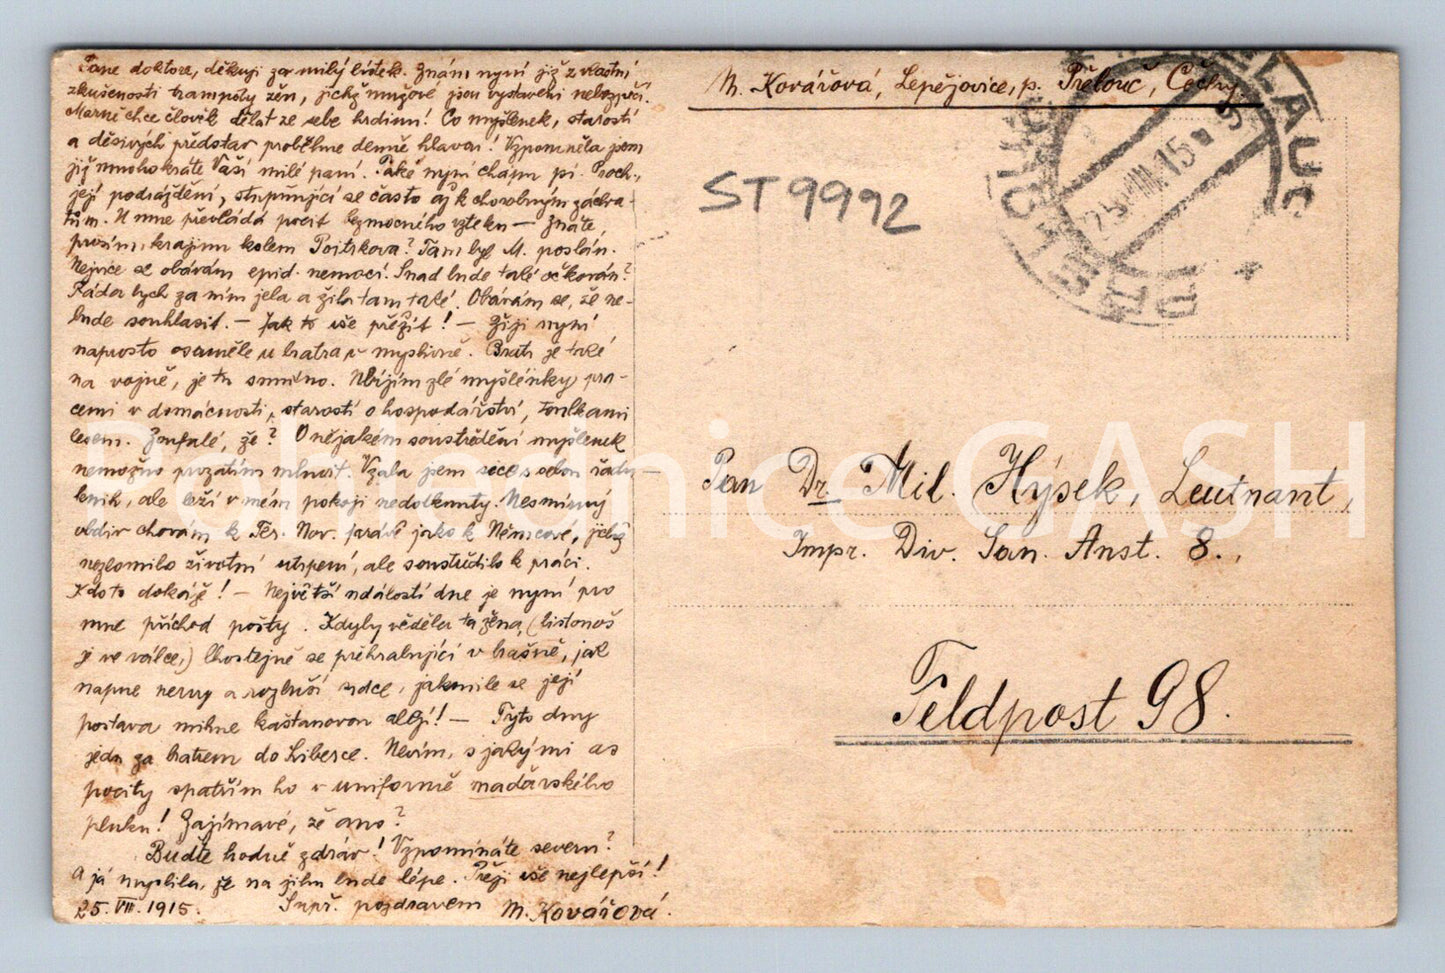 Pane doktore, děkuji za milý lístek. Znám nyní již z vlastní
zkušenosti trampoty žen, jichž mužové jsou vystaveni nebezpečí.
Marně chce člověk dělat ze sebe hrdinu! Co myšlenek, starostí
a děsivých představ proběhne denně hlavou! Vzpomněla jsem
již mnohokráte Vaší milé paní. Také nyní chápu pí. Proch.,
její podráždění, stupňující se často až k chorobným záchva-
tům. U mne převládá pocit bezmocného vzteku — Znáte,
prosím, krajinu kolem Piotrkova? Tam byl M. poslán.
Nejvíce se obávám epid. nemocí. Snad bude také očkován?
Ráda bych za ním jela a žila tam také. Obávám se, že ne-
bude souhlasit. — Jak to vše přežít! — Žiji nyní
naprosto osaměle u bratra v myslivně. Bratr je také
na vojně, je tu smutno. Ubíjím zlé myšlénky pra-
cemi v domácnosti, starostí o hospodářství, toulkami
lesem. Zoufalé, že? O nějakém soustředění myšlenek
nemožno prozatím mluvit. Vzala jsem sice s sebou řády
knih, ale leží v mém pokoji nedotknuty. Nesmírný
obdiv chovám k Ter. Nov. právě jako k Němcové, jichž
nezlomilo životní utrpení, ale soustředilo k práci.
Kdo to dokáže! — Největší událostí dne je nyní pro
mne příchod pošty. Kdyby věděla ta žena, (listonoš
je ve válce,) lhostejně se přehrabující v brašně, jak
napne nervy a rozbuší srdce, jakmile se její
postava mihne kaštanovou alejí! — Tyto dny
jedu za bratrem do Liberce. Nevím, s jakými as
pocity spatřím ho v uniformě maďarského
pluku! Zajímavé, že ano?
Buďte hodně zdráv! Vzpomínáte severu?
A já myslila, že na jihu bude lépe. Přeji vše nejlepší!
25. VIII. 1915. Srdř. pozdravem M. Kovářová.
M. Kovářová, Lepějovice, p. Přelouč, Čechy
ST9992
25 VIII 15
Pan Dr Mil. Hýsek, Leutnant,
Impr. Div. San. Anst. 8.,
Feldpost 98.
Pohlednice CASH